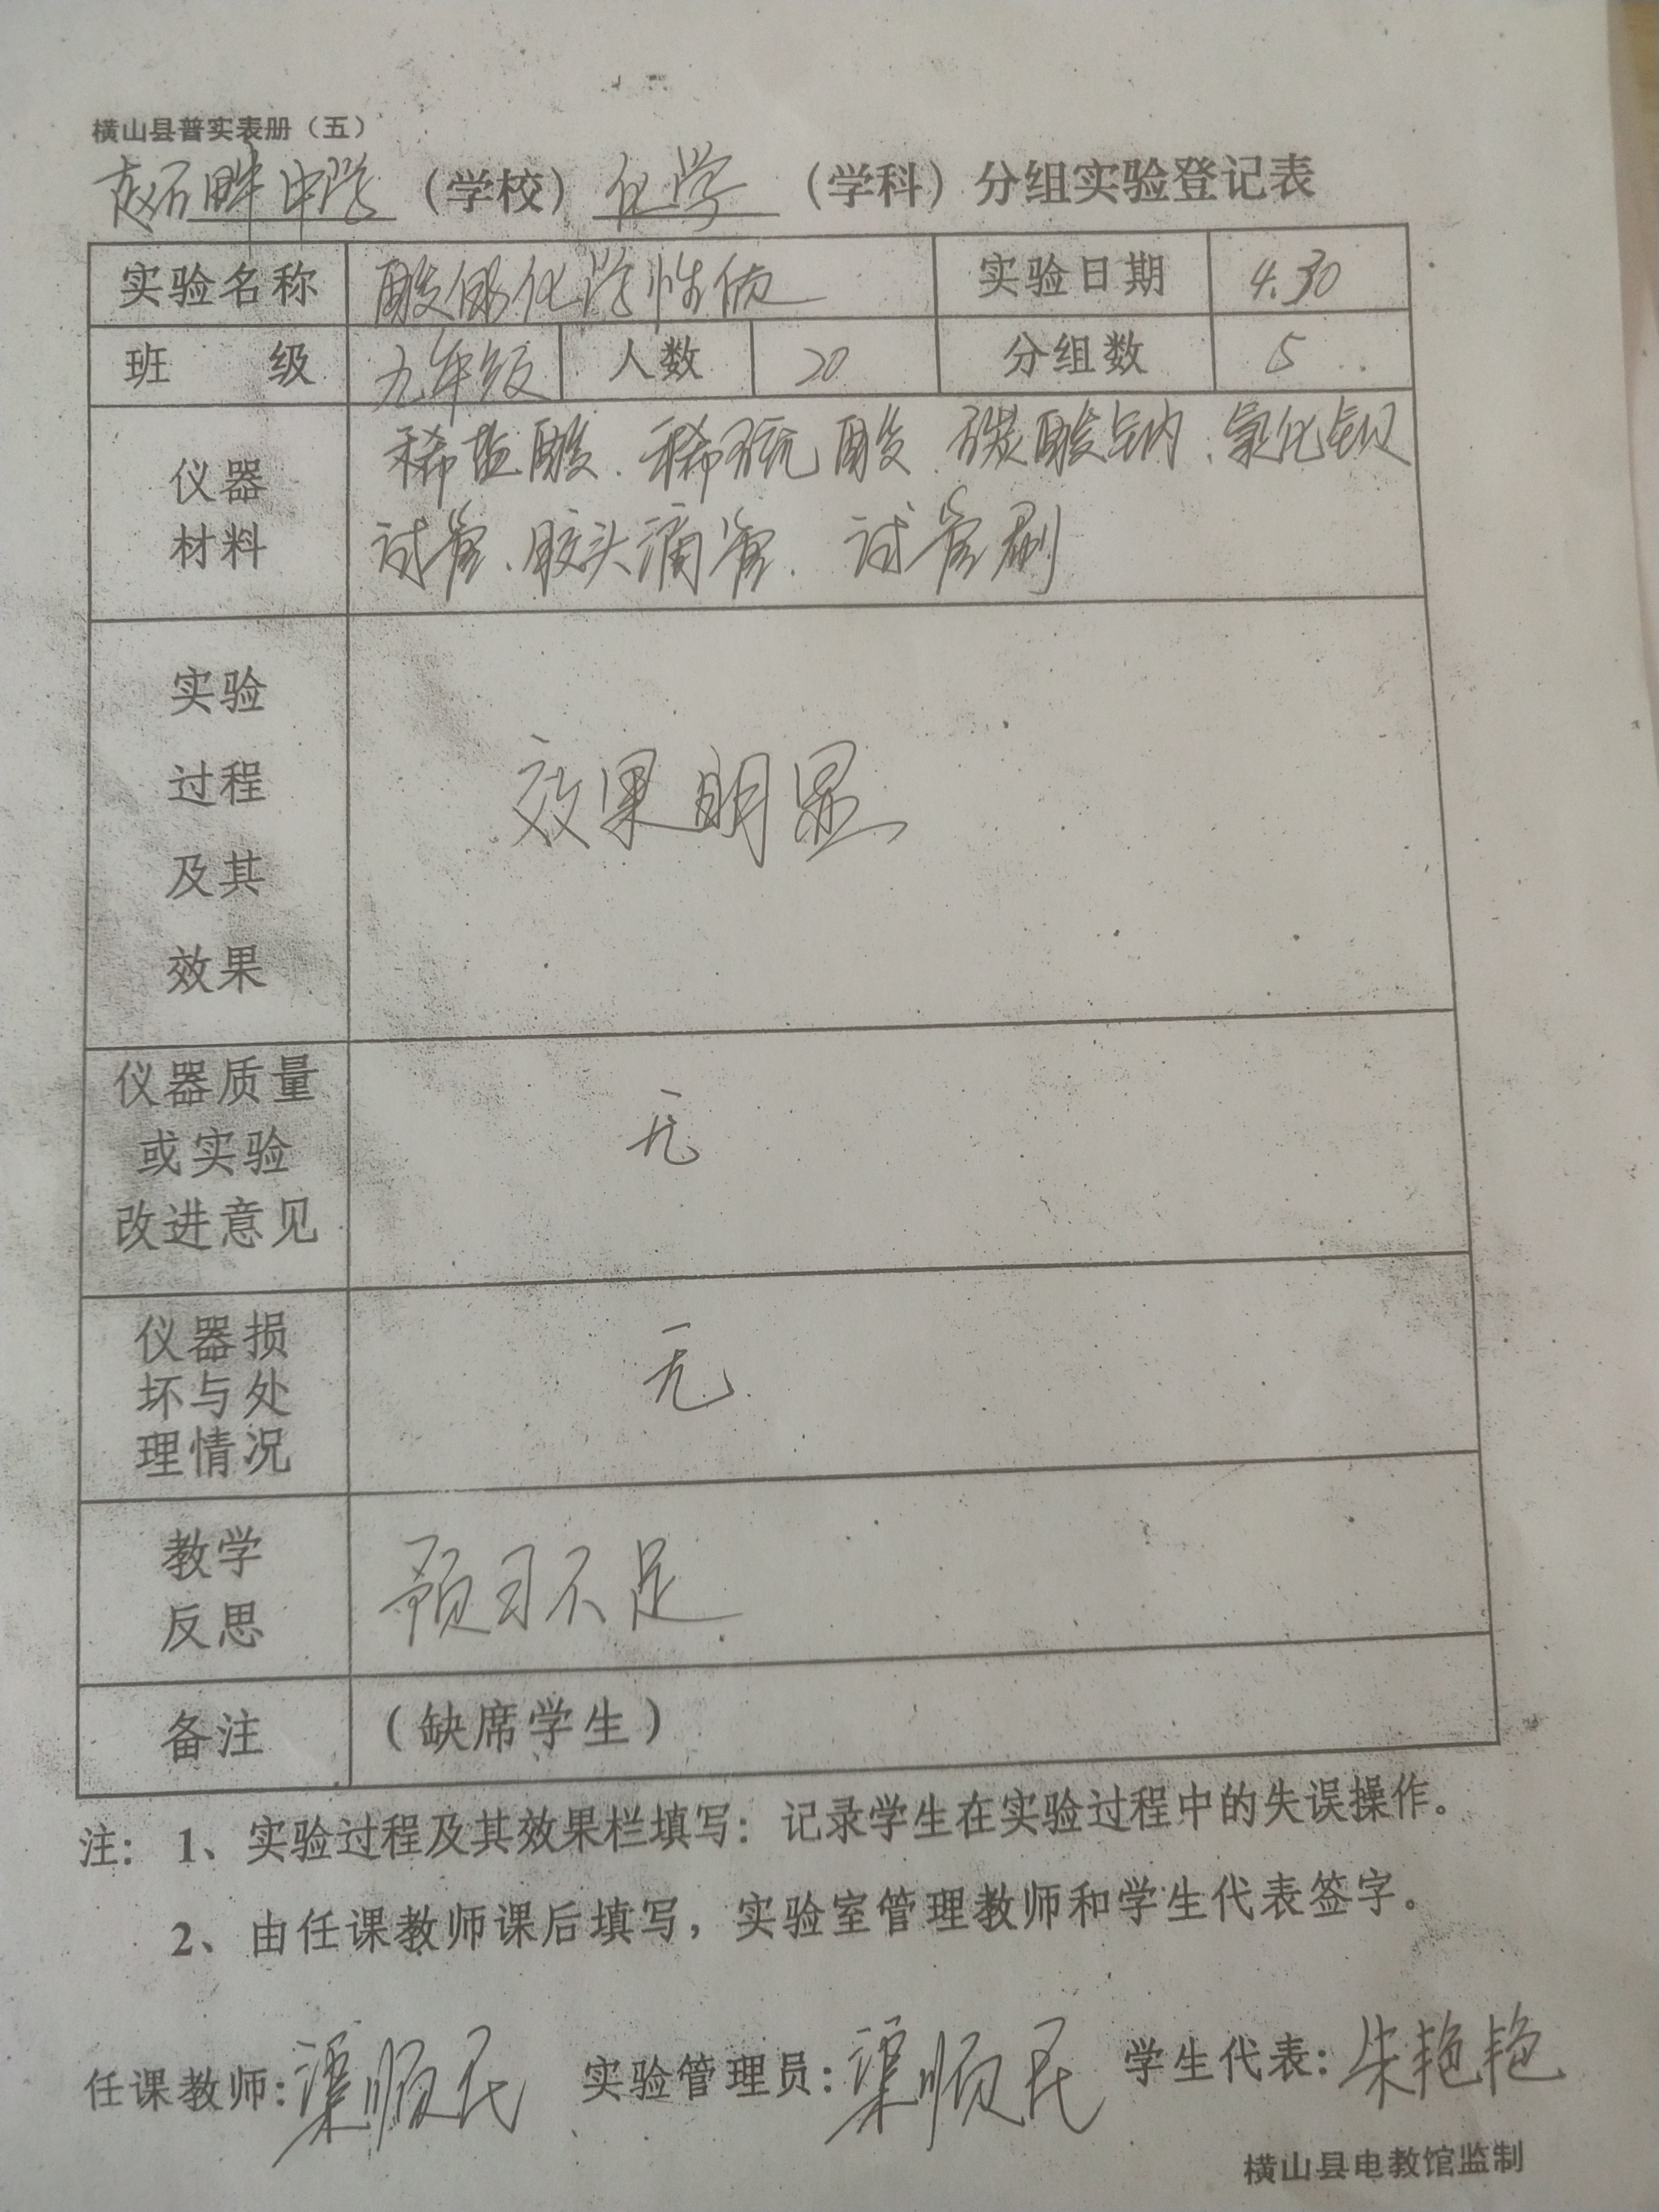 横山县普实表册（五）
赵石畔中学（学校）化学（学科）分组实验登记表
实验名称 酸的化学性质 实验日期 4.30
班 级 九年级 人数 20 分组数 5
仪器材料 稀盐酸、稀硫酸、碳酸钠、氯化钡
试管、胶头滴管、试管刷
实验
过程
及其
效果
效果明显
仪器质量
或实验
改进意见
无
仪器损
坏与处
理情况
无
教学
反思
预习不足
备注 （缺席学生）
注：1、实验过程及其效果栏填写：记录学生在实验过程中的失误操作。
2、由任课教师课后填写，实验室管理教师和学生代表签字。
任课教师：渠顺民 实验管理员：渠顺民 学生代表：朱艳艳
横山县电教馆监制